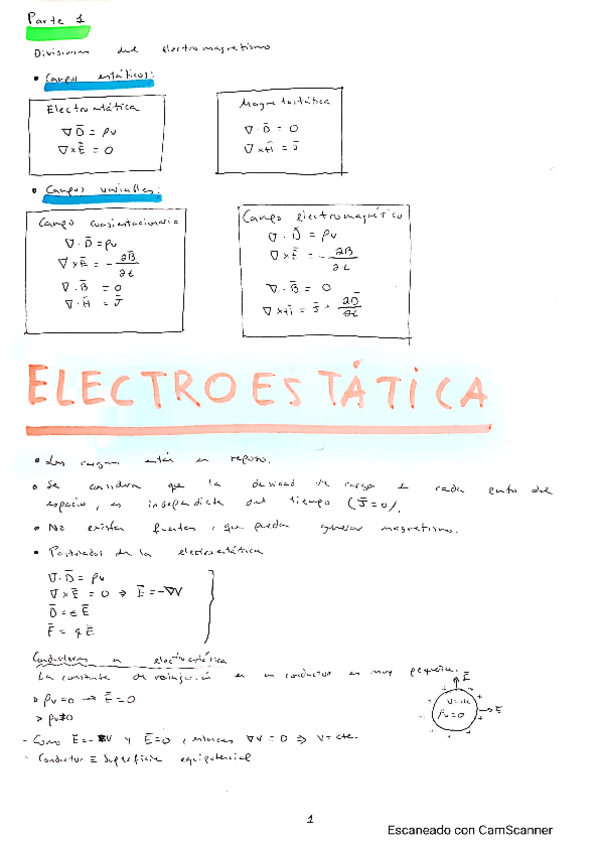 Parte 1
Divisiones del electromagnetismo
• Campos estáticos:
Electrostática
∇ D̄ = ρv
∇×Ē = 0
Magnetostática
∇·B̄ = 0
∇×H̄ = J̄
• Campos variables:
Campo cuasiestacionario
∇·D̄ = ρv
∇×Ē = - ∂B̄/∂t
∇·B̄ = 0
∇·H̄ = J̄
Campo electromagnético
∇·D̄ = ρv
∇×Ē = - ∂B/∂t
∇·B̄ = 0
∇×H̄ = J̄ + ∂D̄/∂t
ELECTROESTÁTICA
• Las cargas están en reposo.
• Se considera que la densidad de carga en cada punto del
espacio, es independiente del tiempo (J̄=0).
• No existen fuentes que puedan generar magnetismo.
• Postulados de la electroestática
∇·D̄ = ρv
∇×Ē = 0 ⇒ Ē=-∇V
D̄ = ε Ē
F̄ = q Ē
Conductores en electroestática
La constante de relajación en un conductor es muy pequeña.
> ρv=0 → Ē=0
> ρs≠0
Ē
V=cte
ρv=0
Ē
- Como Ē=-∇V y Ē=0, entonces ∇V = 0 ⇒ V=cte.
- Conductor ≡ Superficie equipotencial
1
Escaneado con CamScanner